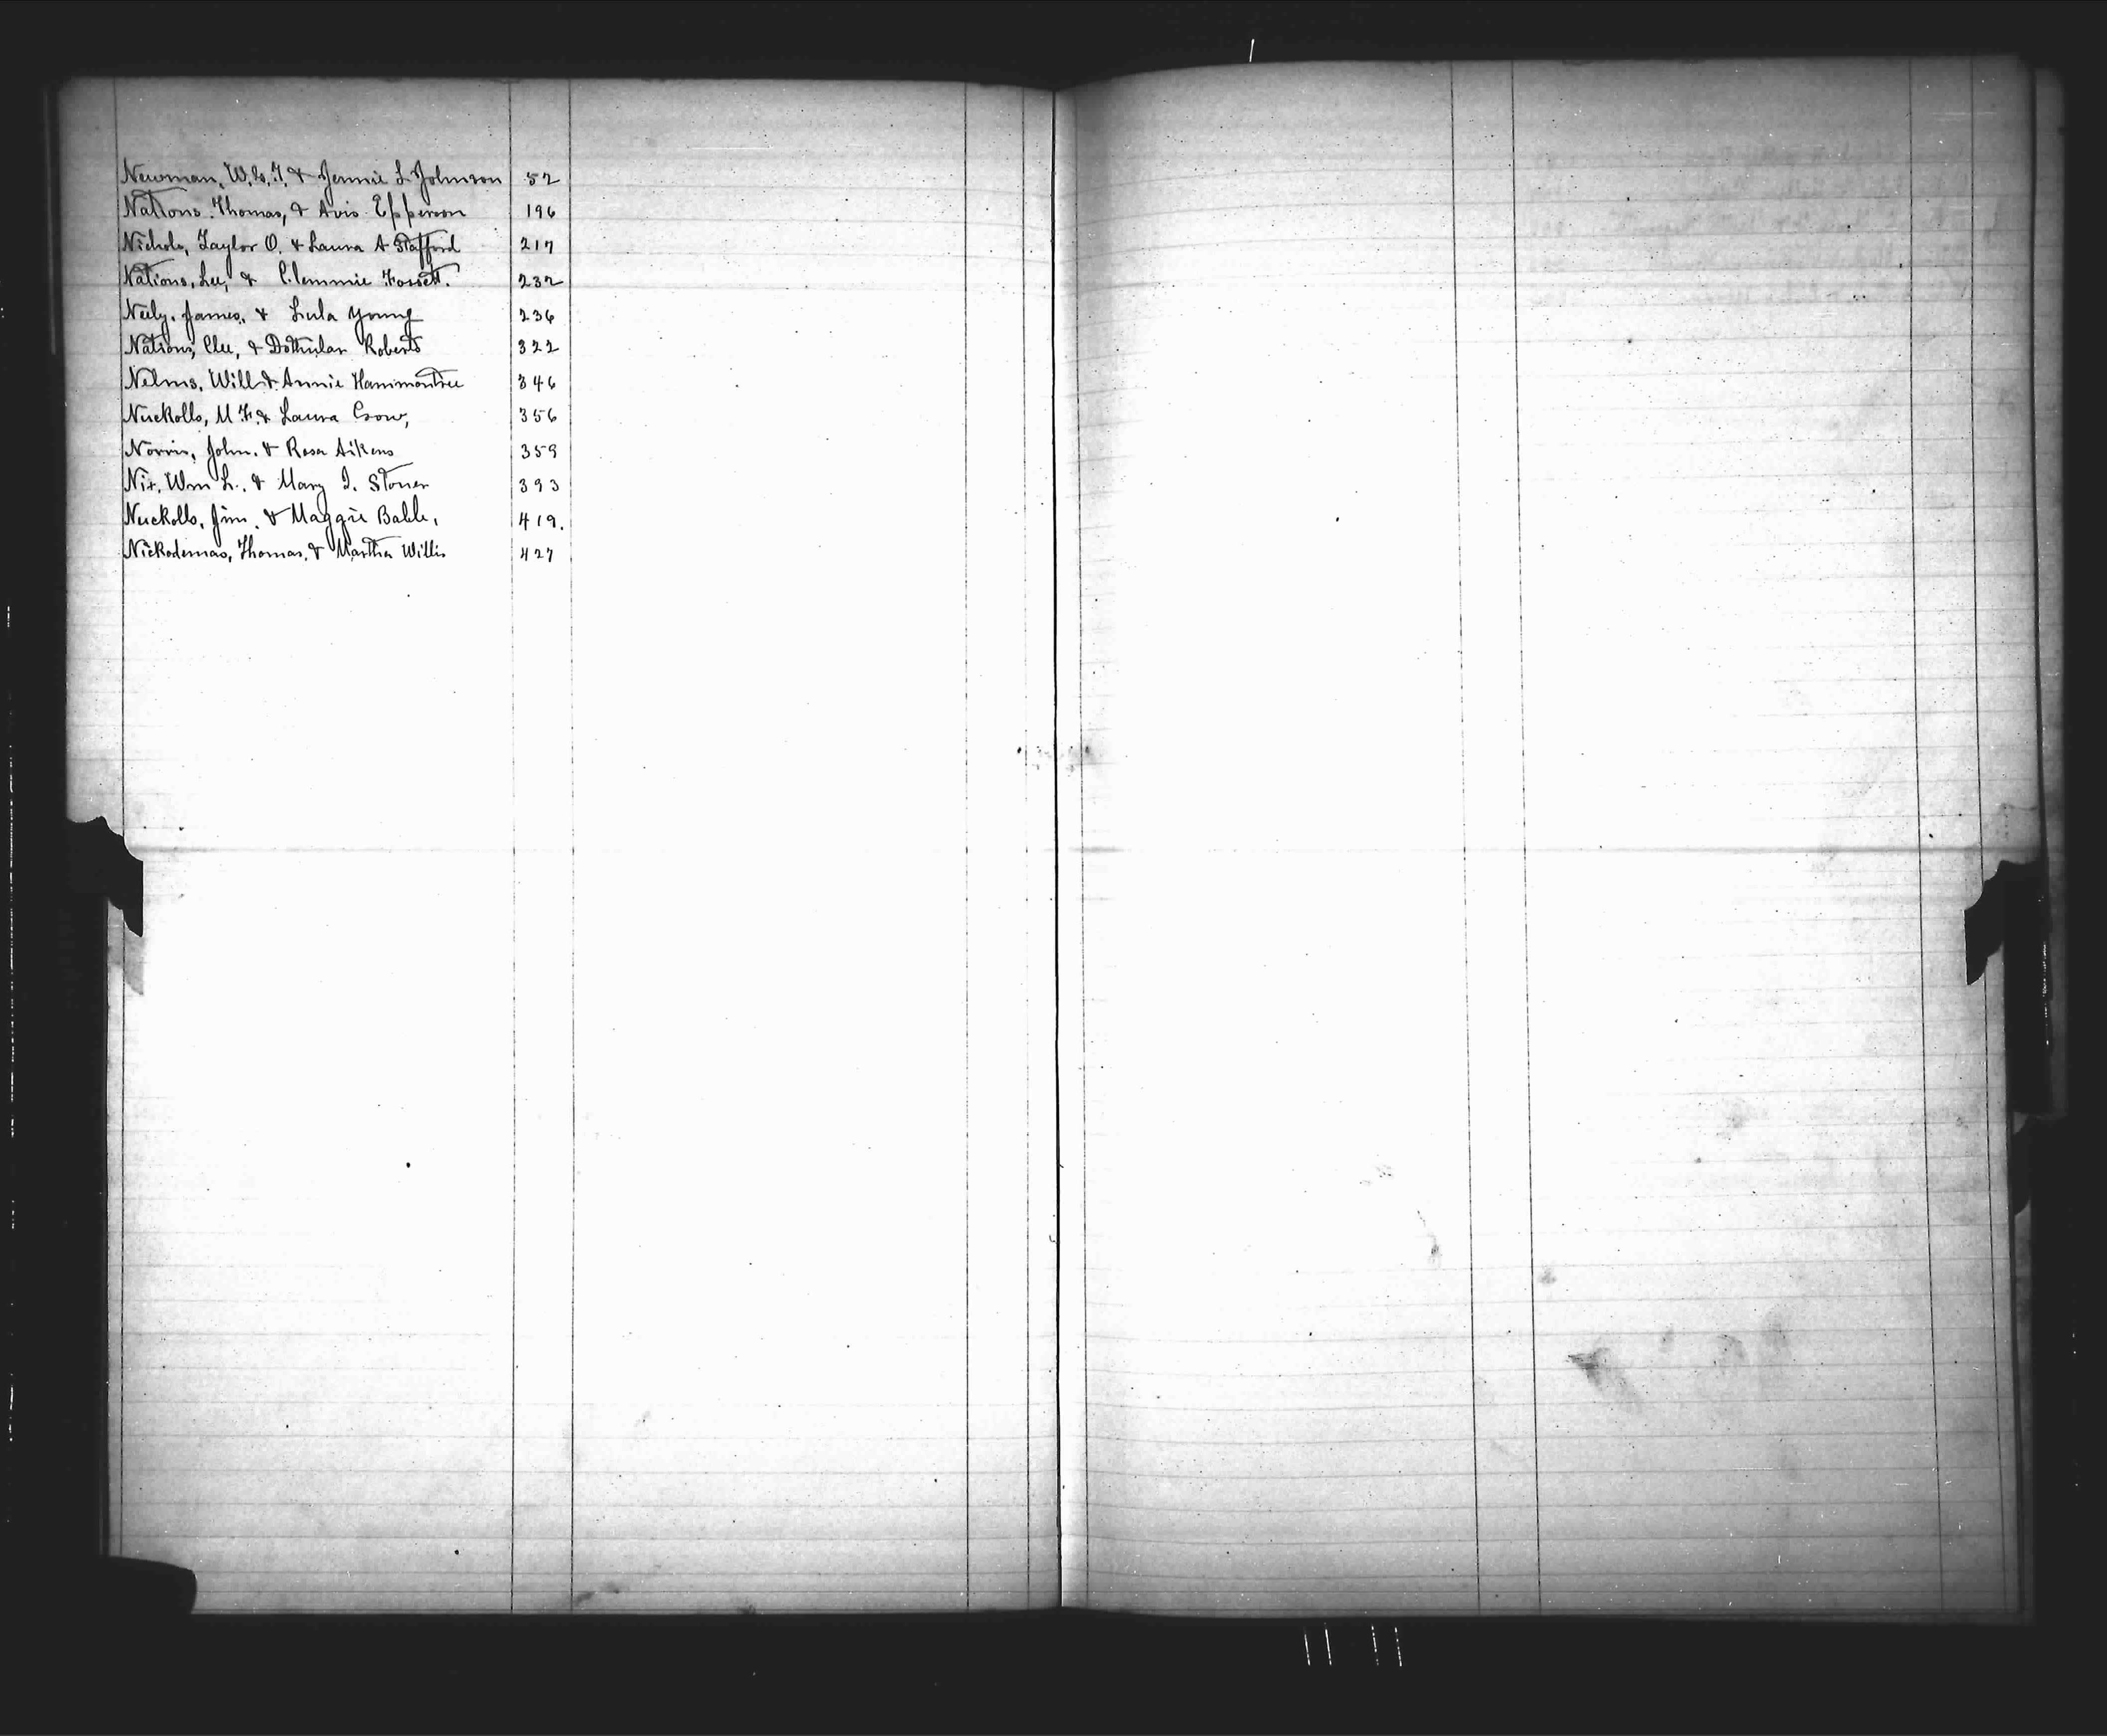 Newman, W. G. T. & Jennie L. Johnson 52
Nations. Thomas, & Avis Epperson 196
Nichols, Taylor O. & Laura A Stafford 217
Nations, Lee, & Clemmie Fossett. 232
Neely, James, & Lula Young 236
Nations, Clee, & Roberts 322
Nelms, Will & Annie Hammontree 346
Nuckolls, M. F. & Laura Crow, 356
Norris, John. & Rosa Aikens 359
Nix, Wm L., & Mary I. Stoner 393
Nuckolls, Jim. & Maggie 419.
Nickodemas, Thomas, & Martha Willis 427